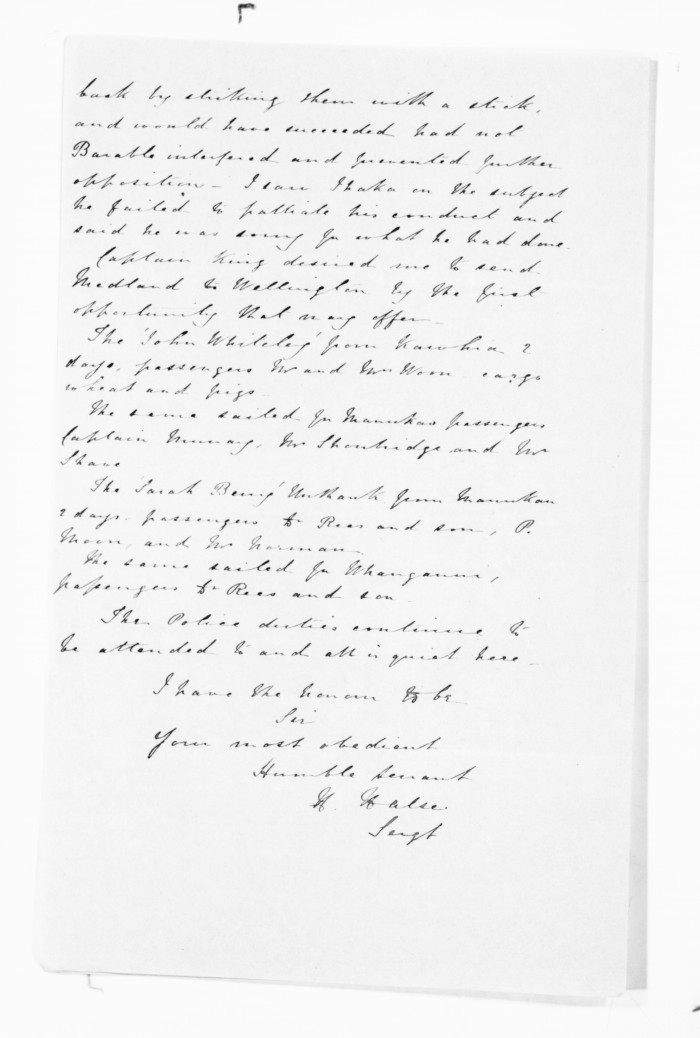 back by striking them with a stick,
and would have succeeded had not
Barable interfered and prevented further
opposition - I saw Ihaka on the subject
he failed to palliate his conduct and
said he was sorry for what he had done -
Captain King desired me to send
Medland to Wellington by the first
opportunity that may offer -
The 'John Whiteley' from Kawhia 2
days, passengers Mr and Mrs Woon - cargo
wheat and pigs -
The same sailed for Manukau passengers
Captain Murray, Mr and Mr
Shave
The 'Sarah Berry' Unthank from Manukau
2 days - passengers Dr Rees and son, P.
Moon, and Mr Norman
The same sailed for Whanganui,
passengers Dr Rees and son -
The Police duties continue to
be attended to and all is quiet here -
I have the honour to be
Sir
Your most obedient
Humble servant
H. Halse.
Sergt